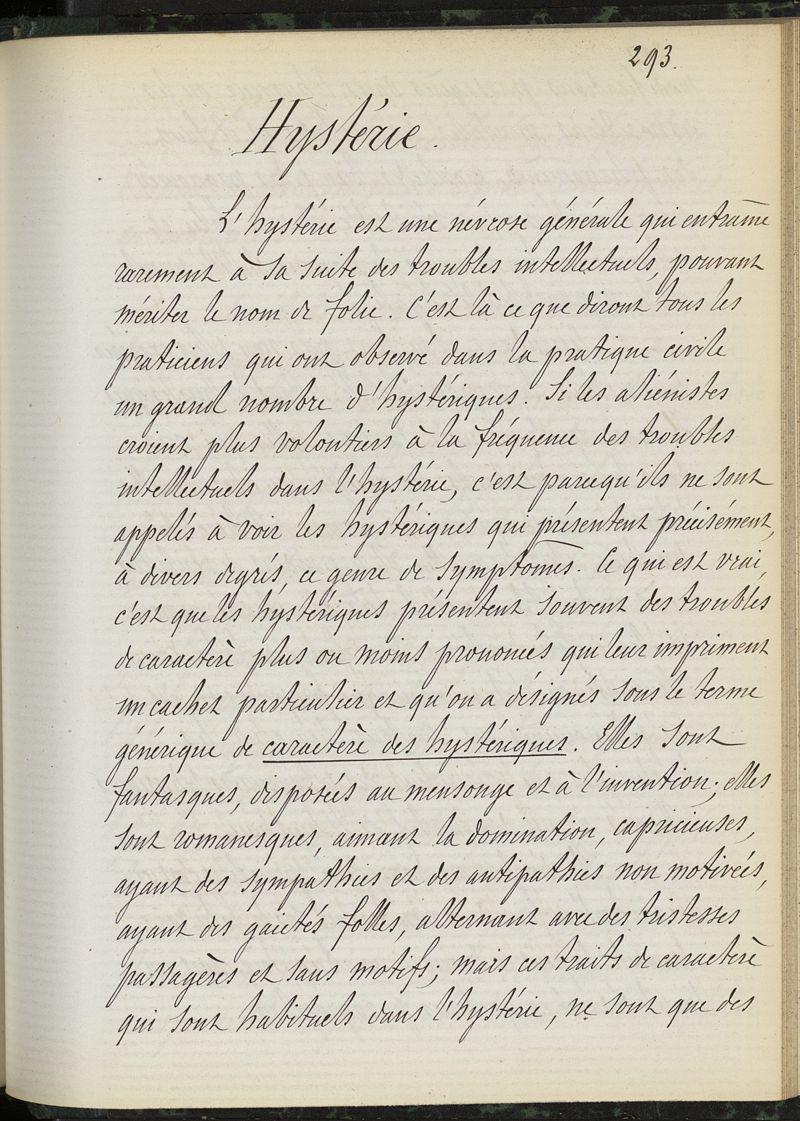 293.
Hystérie.
L'hystérie est une névrose générale qui entraîne
rarement à sa suite des troubles intellectuels, pouvant
mériter le nom de folie. C'est là ce que diront tous les
praticiens qui ont observé dans la pratique civile
un grand nombre d'hystériques. Si les aliénistes
croient plus volontiers à la fréquence des troubles
intellectuels dans l'hystérie, c'est parcequ'ils ne sont
appelés à voir les hystériques qui présentent précisément,
à divers degrés, ce genre de symptômes. Ce qui est vrai,
c'est que les hystériques présentent souvent des troubles
de caractère plus ou moins prononcés qui leur impriment
un cachet particulier et qu'on a désignés sous le terme
générique de caractère des hystériques. Elles sont
fantasques, disposées au mensonge et à l'invention; elles
sont romanesques, aimant la domination, capricieuses,
ayant des sympathies et des antipathies non motivées,
ayant des gaietés folles, alternant avec des tristesses
passagères et sans motifs; mais ces traits de caractère
qui sont habituels dans l'hystérie, ne sont que des